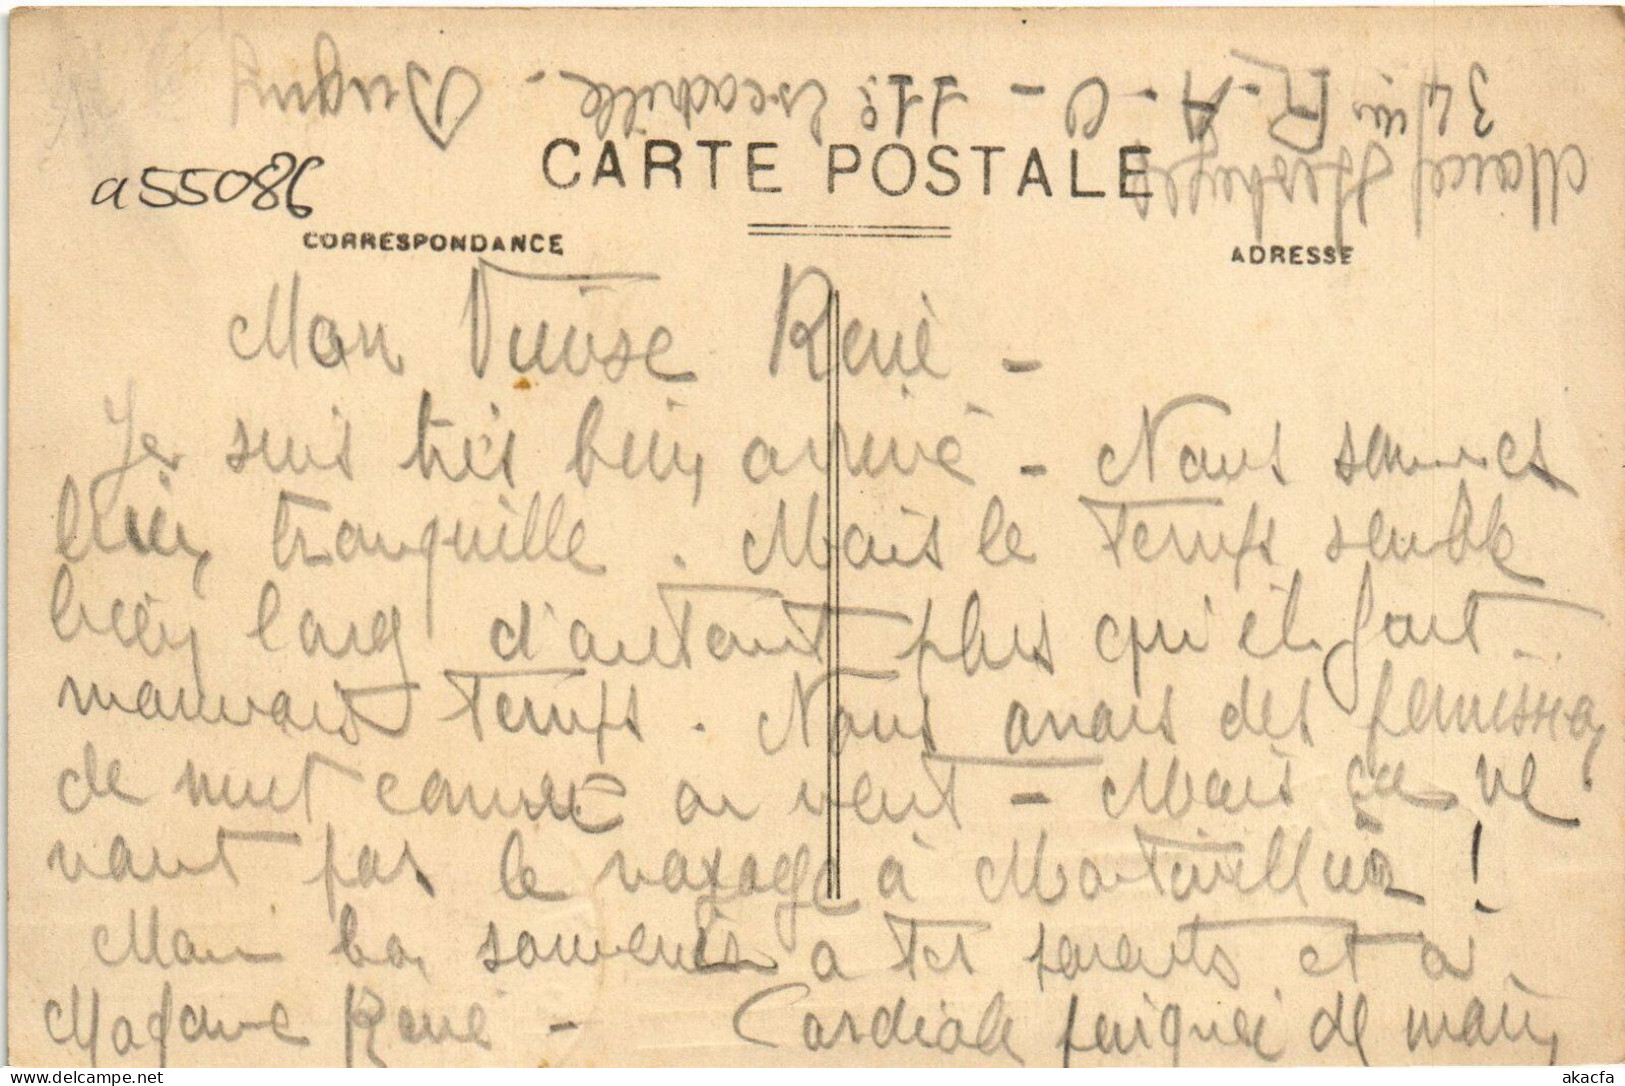 Marcel
34ème R.A.O - 11e Escadrille - Dugny
CARTE POSTALE
a55086
CORRESPONDANCE
ADRESSE
Mon Vieux René -
Je suis très bien arrivé - Nous sommes
bien tranquille. Mais le temps semble
bien long d'autant plus qu'il fait
mauvais temps. Nous avons des permission
de nuit comme on veut - Mais ça ne
vaut pas le voyage à !
Mon bon souvenir a tes parents et à
Madame René - Cordiale poignée de main
akacfa